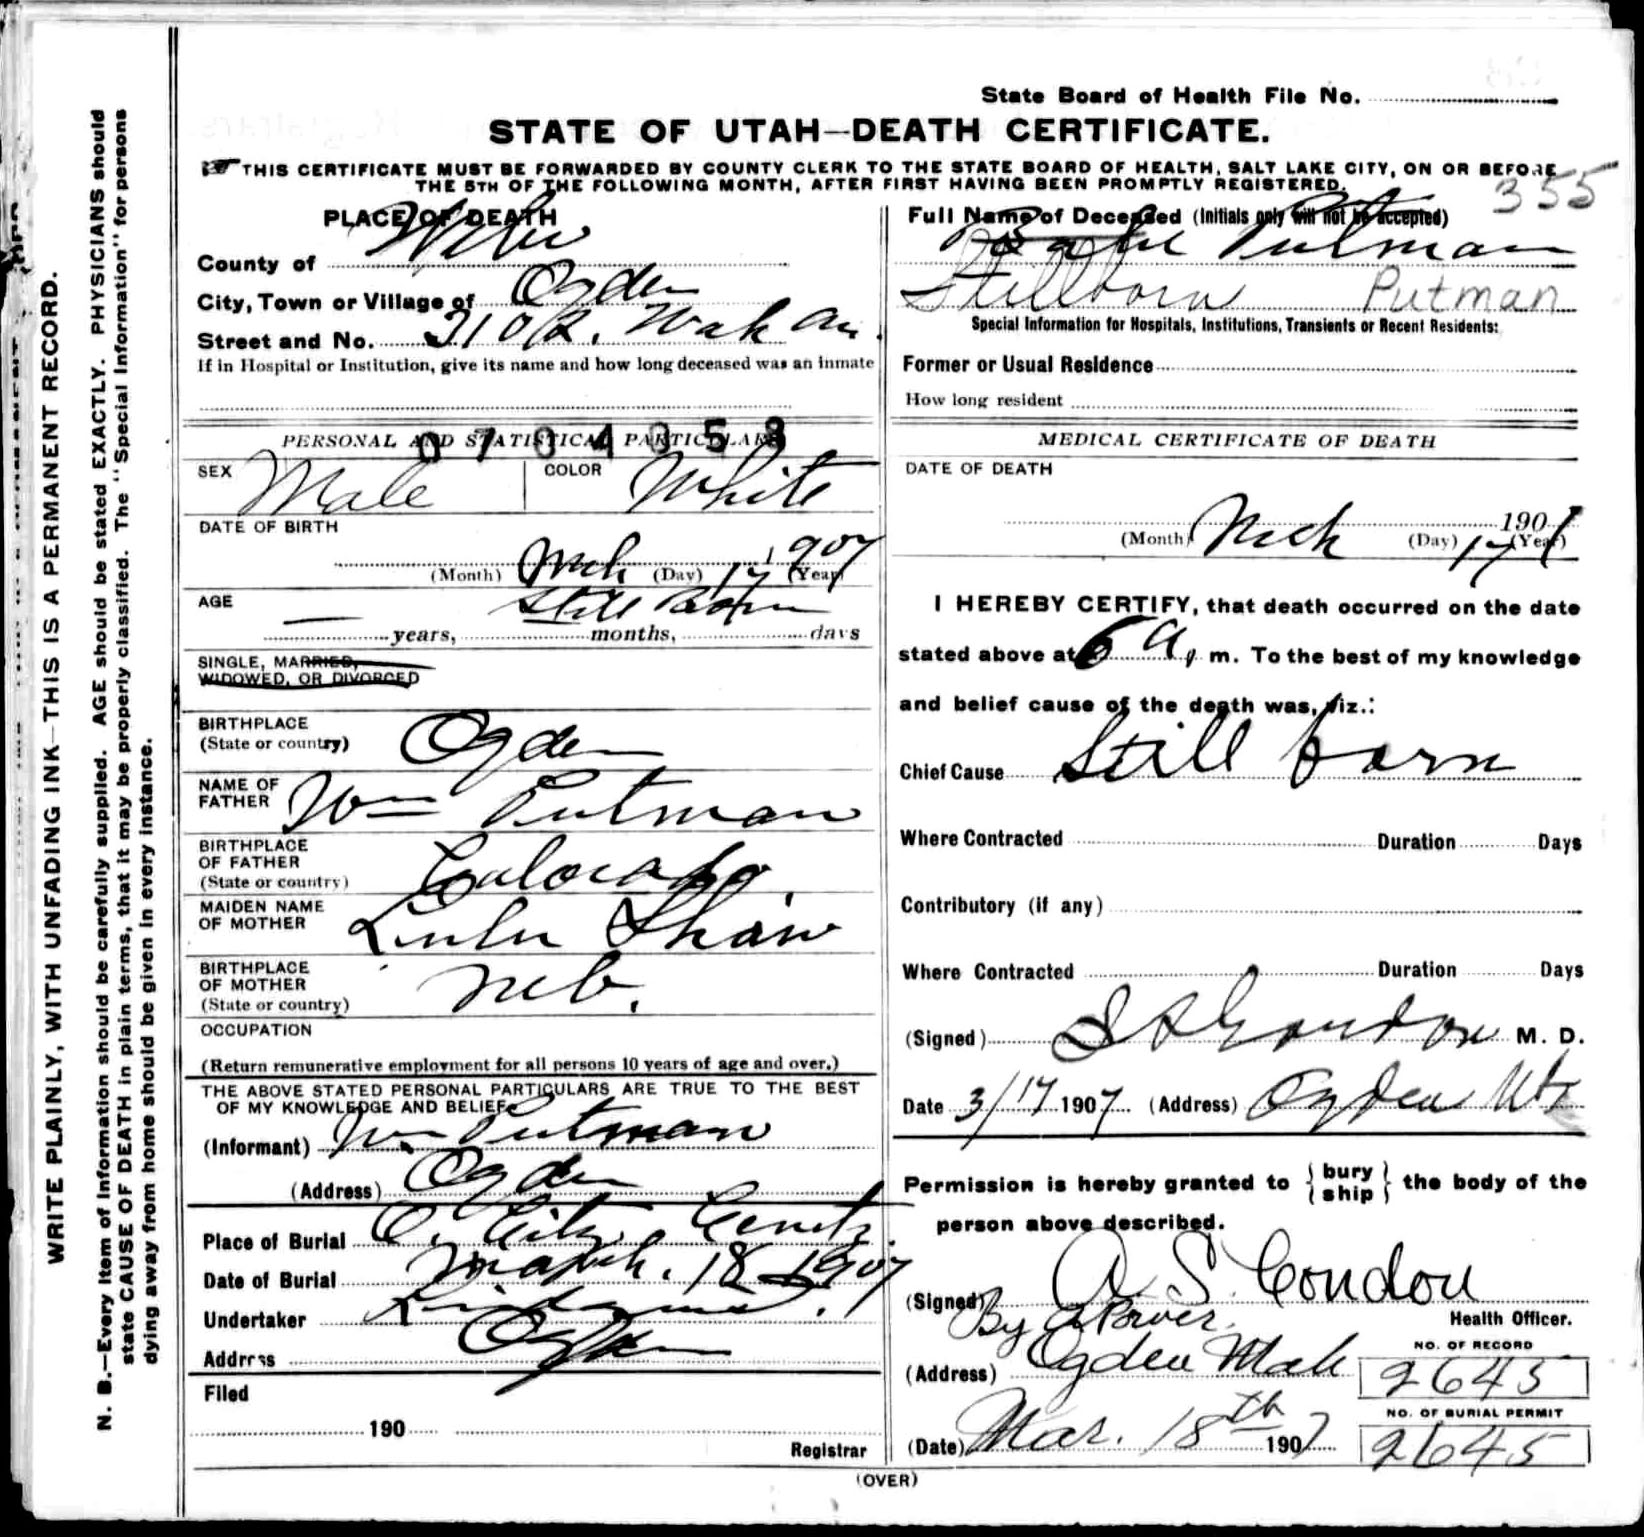 State Board of Health File No.
STATE OF UTAH—DEATH CERTIFICATE.
THIS CERTIFICATE MUST BE FORWARDED BY COUNTY CLERK TO THE STATE BOARD OF HEALTH, SALT LAKE CITY, ON OR BEFORE
THE 5TH OF THE FOLLOWING MONTH, AFTER FIRST HAVING BEEN PROMPTLY REGISTERED.
355
WRITE PLAINLY, WITH UNFADING INK—THIS IS A PERMANENT RECORD.
N. B.—Every item of information should be carefully supplied. AGE should be stated EXACTLY. PHYSICIANS should
state CAUSE OF DEATH in plain terms, that it may be properly classified. The "Special Information" for persons
dying away from home should be given in every instance.
PLACE OF DEATH
County of Weber
City, Town or Village of Ogden
Street and No. 3102
If in Hospital or Institution, give its name and how long deceased was an inmate
PERSONAL AND STATISTICAL PARTICULARS
0704053
SEX Male COLOR White
DATE OF BIRTH
(Month) Mch (Day) 17 (Year) 1907
AGE — Still Born
years, months, days
SINGLE, MARRIED,
WIDOWED, OR DIVORCED
BIRTHPLACE
(State or country) Ogden
NAME OF
FATHER Wm Putman
BIRTHPLACE
OF FATHER
(State or country) Colorado.
MAIDEN NAME
OF MOTHER Lulu Shaw
BIRTHPLACE
OF MOTHER
(State or country) Neb.
OCCUPATION
(Return remunerative employment for all persons 10 years of age and over.)
THE ABOVE STATED PERSONAL PARTICULARS ARE TRUE TO THE BEST
OF MY KNOWLEDGE AND BELIEF.
(Informant) Wm Putman
(Address) Ogden
Place of Burial O. City Cemt.
Date of Burial March. 18 1907
Undertaker
Address Ogden
Filed
190
Registrar
Full Name of Deceased (Initials only will not be accepted)
Babe Putman
Stillborn Putman
Special Information for Hospitals, Institutions, Transients or Recent Residents:
Former or Usual Residence
How long resident
MEDICAL CERTIFICATE OF DEATH
DATE OF DEATH
(Month) Mch (Day) 17 1907 (Year)
I HEREBY CERTIFY, that death occurred on the date
stated above at 6 a. m. To the best of my knowledge
and belief cause of the death was, viz.:
Chief Cause Still born
Where Contracted Duration Days
Contributory (if any)
Where Contracted Duration Days
(Signed) Gordon M. D.
Date 3/17 1907 (Address) Ogden Ut
Permission is hereby granted to { bury ship } the body of the
person above described.
(Signed) A. S. Condon
By A Power. Health Officer.
(Address) Ogden
NO. OF RECORD
2645
NO. OF BURIAL PERMIT
2645
(Date) Mar. 18th 1907
(OVER)